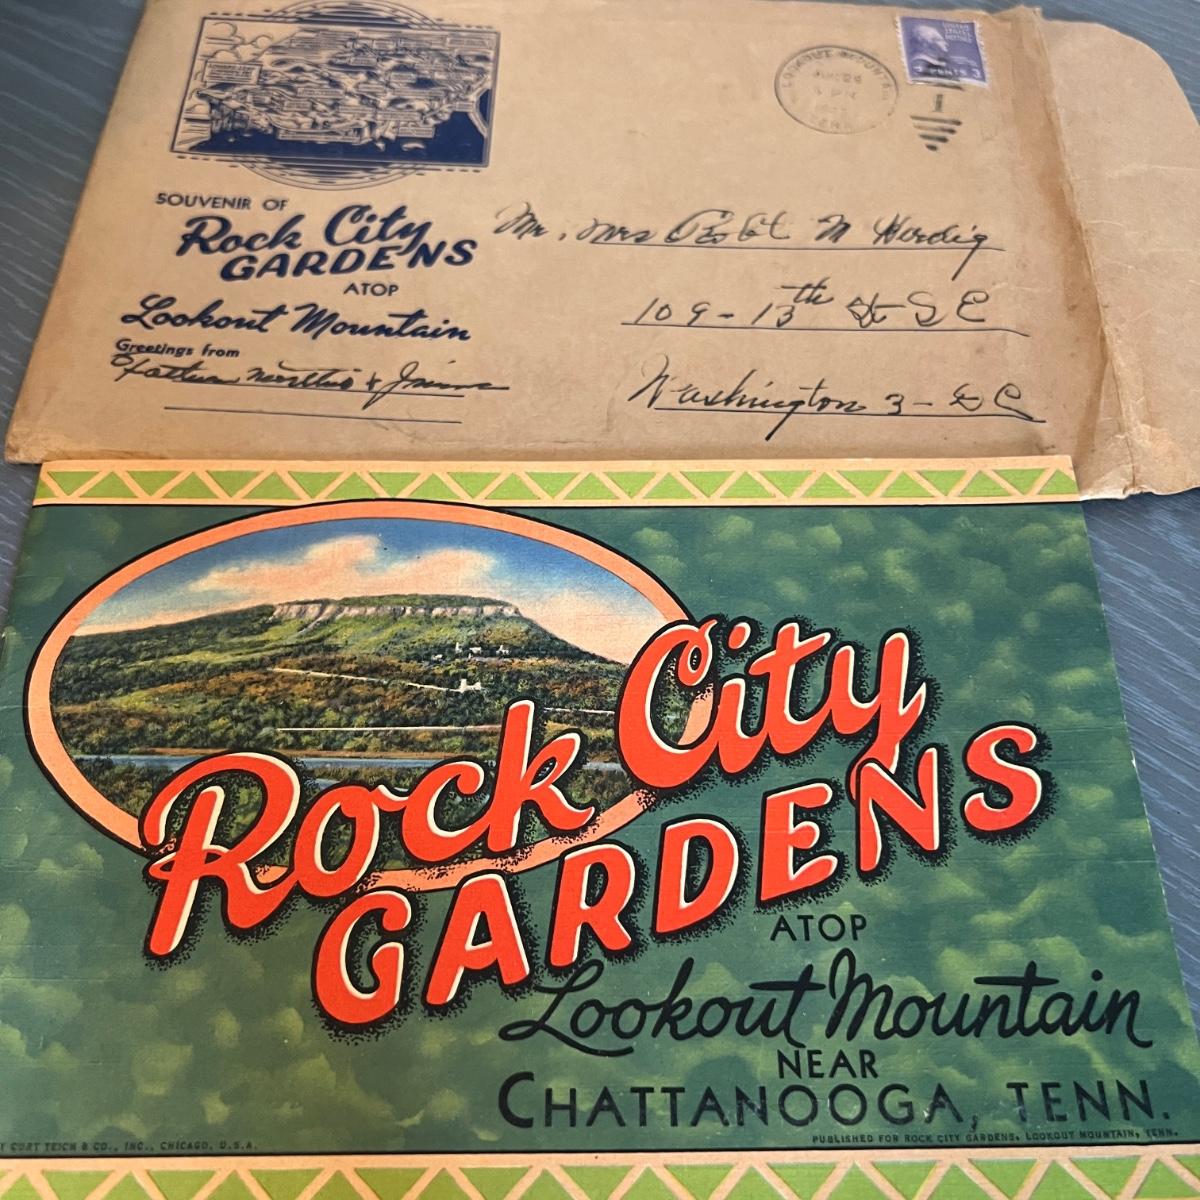 UNITED
STATES
POSTAGE
3 CENTS 3
LOOKOUT MOUNTAIN
TENN.
1
SOUVENIR OF
Rock City
GARDENS
ATOP
Lookout Mountain
Greetings from
Mr. Mrs M Herdig
109-13th St SE
Washington 3-DC
Rock City
GARDENS
ATOP
Lookout Mountain
NEAR
CHATTANOOGA, TENN.
CURT TEICH & CO., INC., CHICAGO, U.S.A.
PUBLISHED FOR ROCK CITY GARDENS, LOOKOUT MOUNTAIN, TENN.